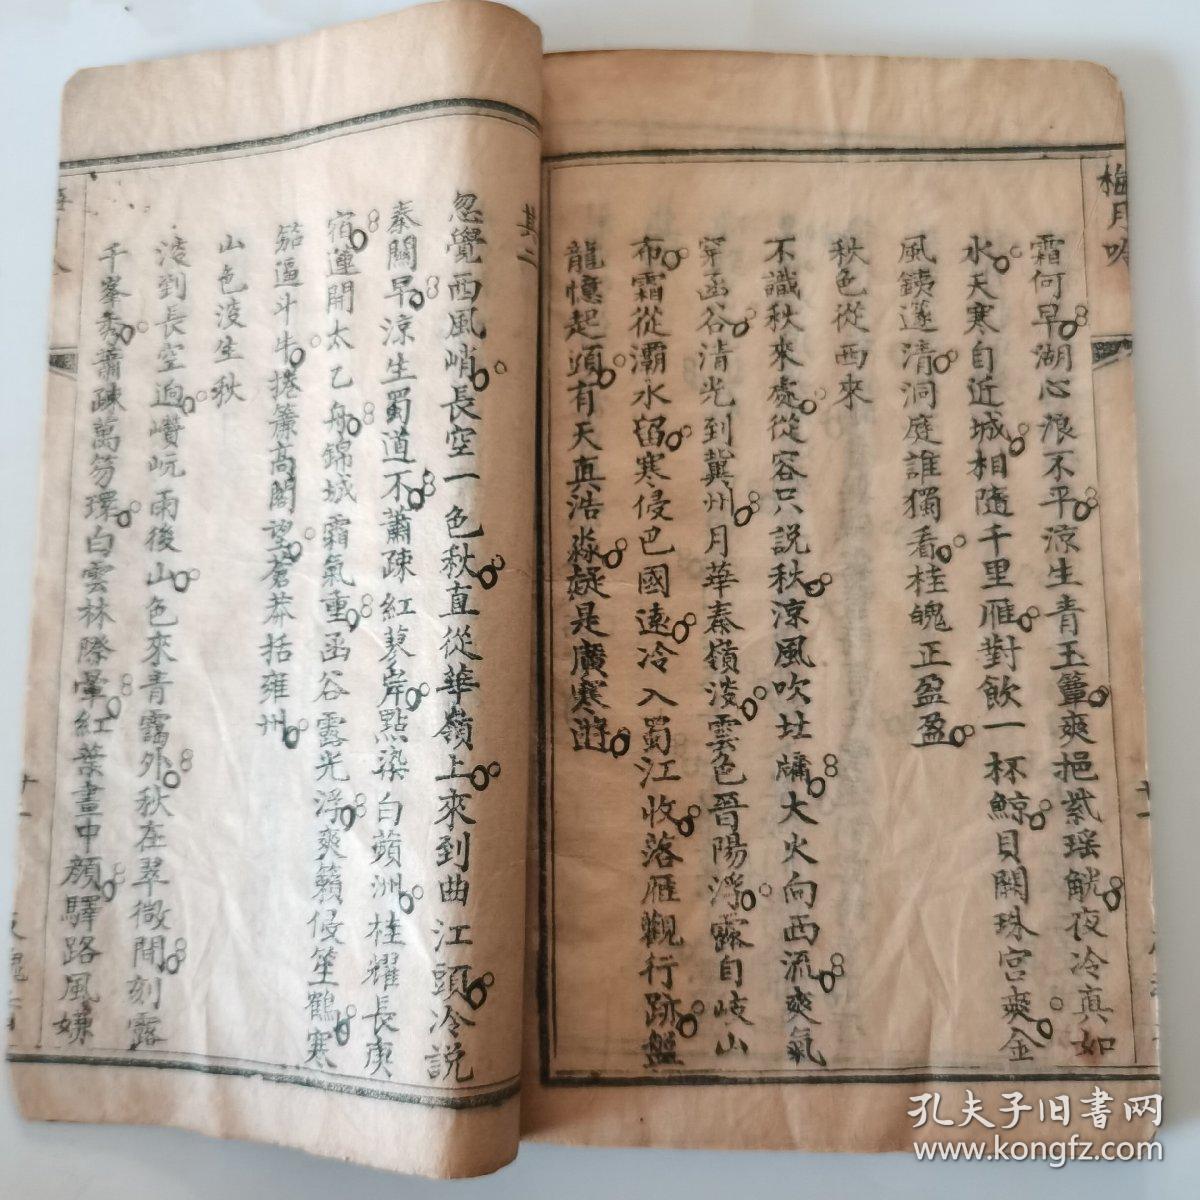 梅月吟
霜何早湖心浪不平涼生青玉簟爽挹紫瑤觥夜冷真如
水天寒自近城相隨千里雁對飲一杯鯨貝闕珠宮爽金
風銕邃清洞庭誰獨看桂魄正盈盈
秋色從西來
不識秋來處從容只說秋涼風吹牡牖大火向西流爽氣
穿函谷清光到冀州月華秦嶺淩雲色晉陽浮露自岐山
布霜從灞水留寒侵巴國遠冷入蜀江收落雁觀行跡盤
龍憶起頭有天真浩淼疑是廣寒遊
其二
忽覺西風峭長空一色秋直從華嶺上來到曲江頭冷說
秦關早涼生蜀道不蕭疎紅蓼岸點染白蘋洲桂耀長庚
宿蓮開太乙舟錦城霜氣重函谷露光浮爽籟侵笙鶴寒
笳逼斗牛捲簾高閣望蒼莽括雍州
山色淩生秋
淩到長空逈巑岏雨後山色來青靄外秋在翠微間刻露
千峯秀蕭疎萬笏環白雲林際暈紅葉畫中顏驛路風嫌
孔夫子旧书网
www.kongfz.com